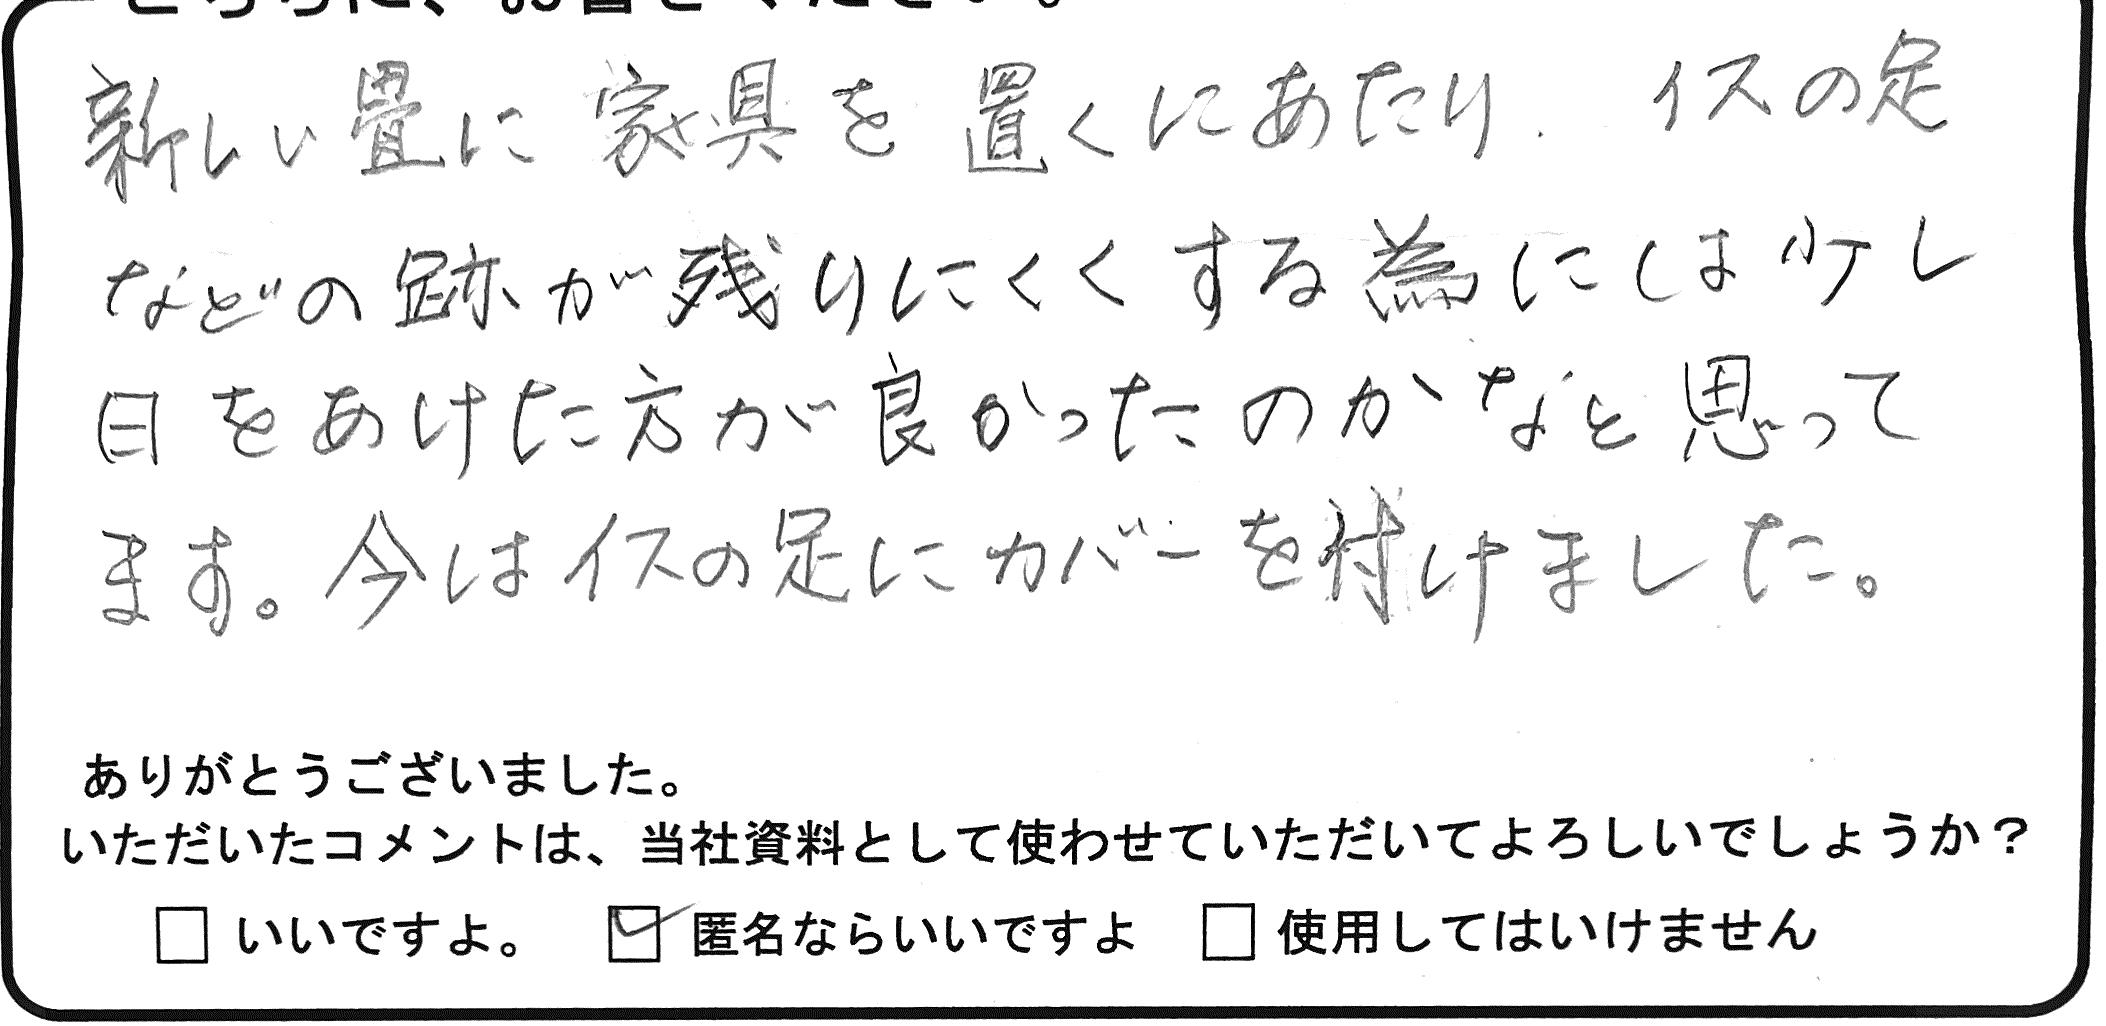 新しい畳に家具を置くにあたり、イスの足
などの跡が残りにくくする為には少し
日をあけた方が良かったのかなと思って
ます。今はイスの足にカバーを付けました。
ありがとうございました。
いただいたコメントは、当社資料として使わせていただいてよろしいでしょうか？
□ いいですよ。 ☑ 匿名ならいいですよ □ 使用してはいけません